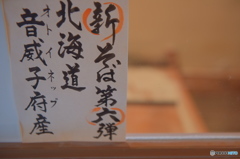 新そば第六弾
北海道
音威子府産
オトイネップ